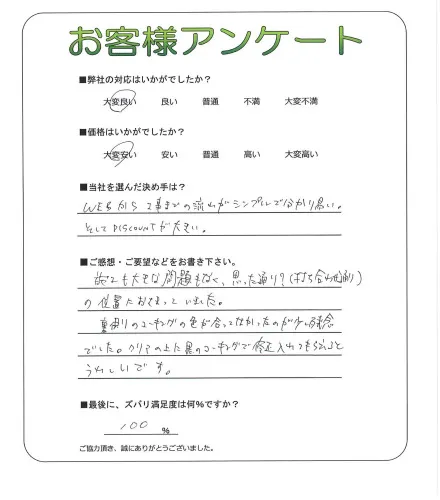 お客様アンケート
■弊社の対応はいかがでしたか？
大変良い 良い 普通 不満 大変不満
■価格はいかがでしたか？
大変安い 安い 普通 高い 大変高い
■当社を選んだ決め手は？
WEBから工事までの流れがシンプルで分かり易い。
そしてDISCOUNTが大きい。
■ご感想・ご要望などをお書き下さい。
大きな問題もなく、思った通り？(打ち合わせ通り)
の位置におさまっていました。
裏周りのコーキングの色が合ってなかったのが少し残念
でした。クリアの上に黒のコーキングで修正入れてもらうと
うれしいです。
■最後に、ズバリ満足度は何％ですか？
100 %
ご協力頂き、誠にありがとうございました。